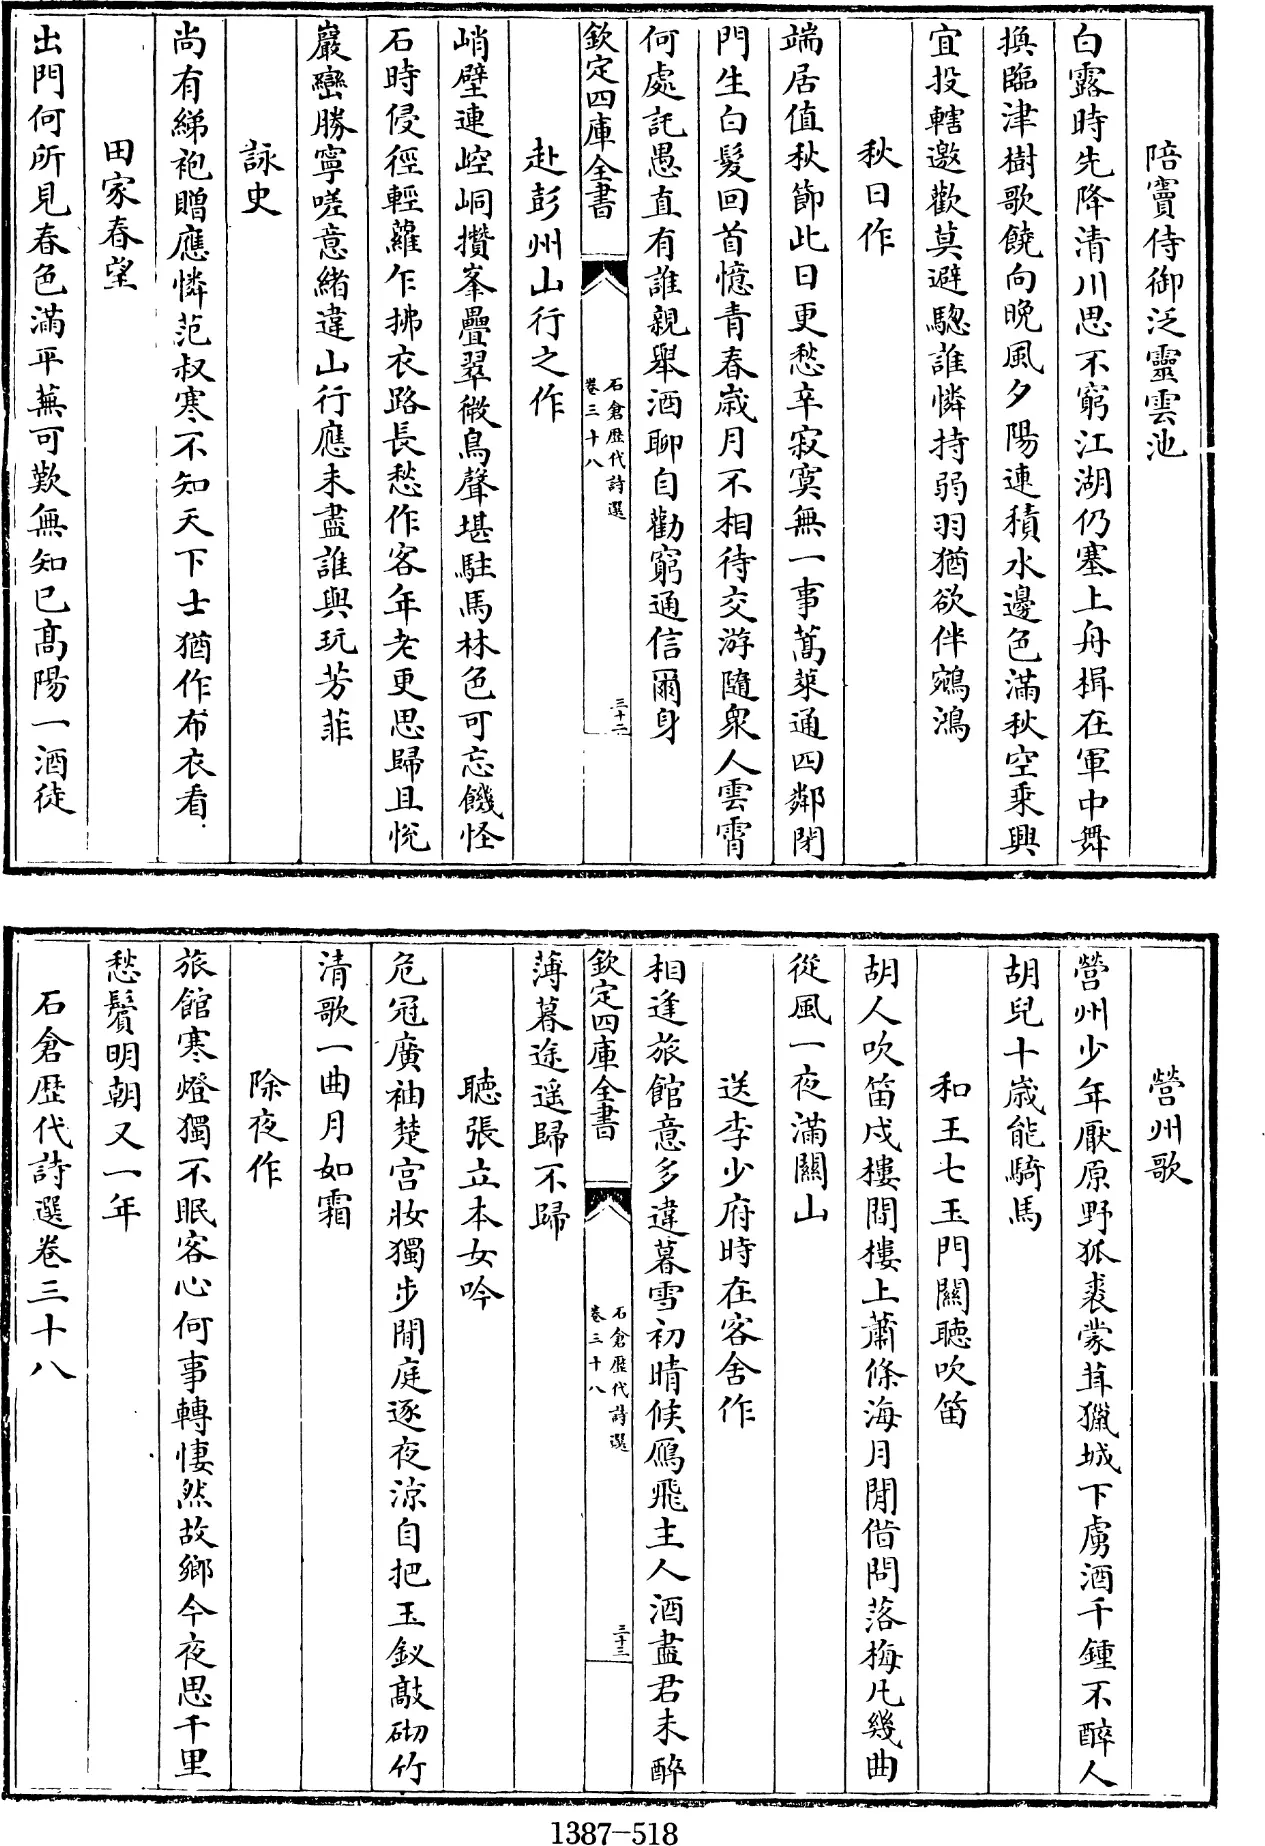 陪竇侍御泛靈雲池
白露時先降清川思不窮江湖仍塞上舟楫在軍中舞
換臨津樹歌饒向晚風夕陽連積水邊色滿秋空乘興
宜投轄邀歡莫避驄誰憐持弱羽猶欲伴鵷鴻
秋日作
端居值秋節此日更愁辛寂寞無一事蒿萊通四鄰閉
門生白髮回首憶青春歲月不相待交游隨衆人雲霄
何處託愚直有誰親舉酒聊自勸窮通信爾身
欽定四庫全書
石倉歷代詩選
卷三十八
三十二
赴彭州山行之作
峭壁連崆峒攢峯疊翠微鳥聲堪駐馬林色可忘饑怪
石時侵徑輕蘿乍拂衣路長愁作客年老更思歸且悅
巖巒勝寧嗟意緒違山行應未盡誰與玩芳菲
詠史
尚有綈袍贈應憐范叔寒不知天下士猶作布衣看
田家春望
出門何所見春色滿平蕪可歎無知已髙陽一酒徒
營州歌
營州少年厭原野狐裘蒙茸獵城下虜酒千鍾不醉人
胡兒十歲能騎馬
和王七玉門關聽吹笛
胡人吹笛戍樓間樓上蕭條海月閒借問落梅凡幾曲
從風一夜滿關山
送李少府時在客舍作
相逢旅館意多違暮雪初晴候鴈飛主人酒盡君未醉
欽定四庫全書
石倉歷代詩選
卷三十八
三十三
薄暮途遥歸不歸
聽張立本女吟
危冠廣袖楚宫妝獨步閒庭逐夜涼自把玉釵敲砌竹
清歌一曲月如霜
除夜作
旅館寒燈獨不眠客心何事轉悽然故鄉今夜思千里
愁鬢明朝又一年
石倉歷代詩選卷三十八
1387-518